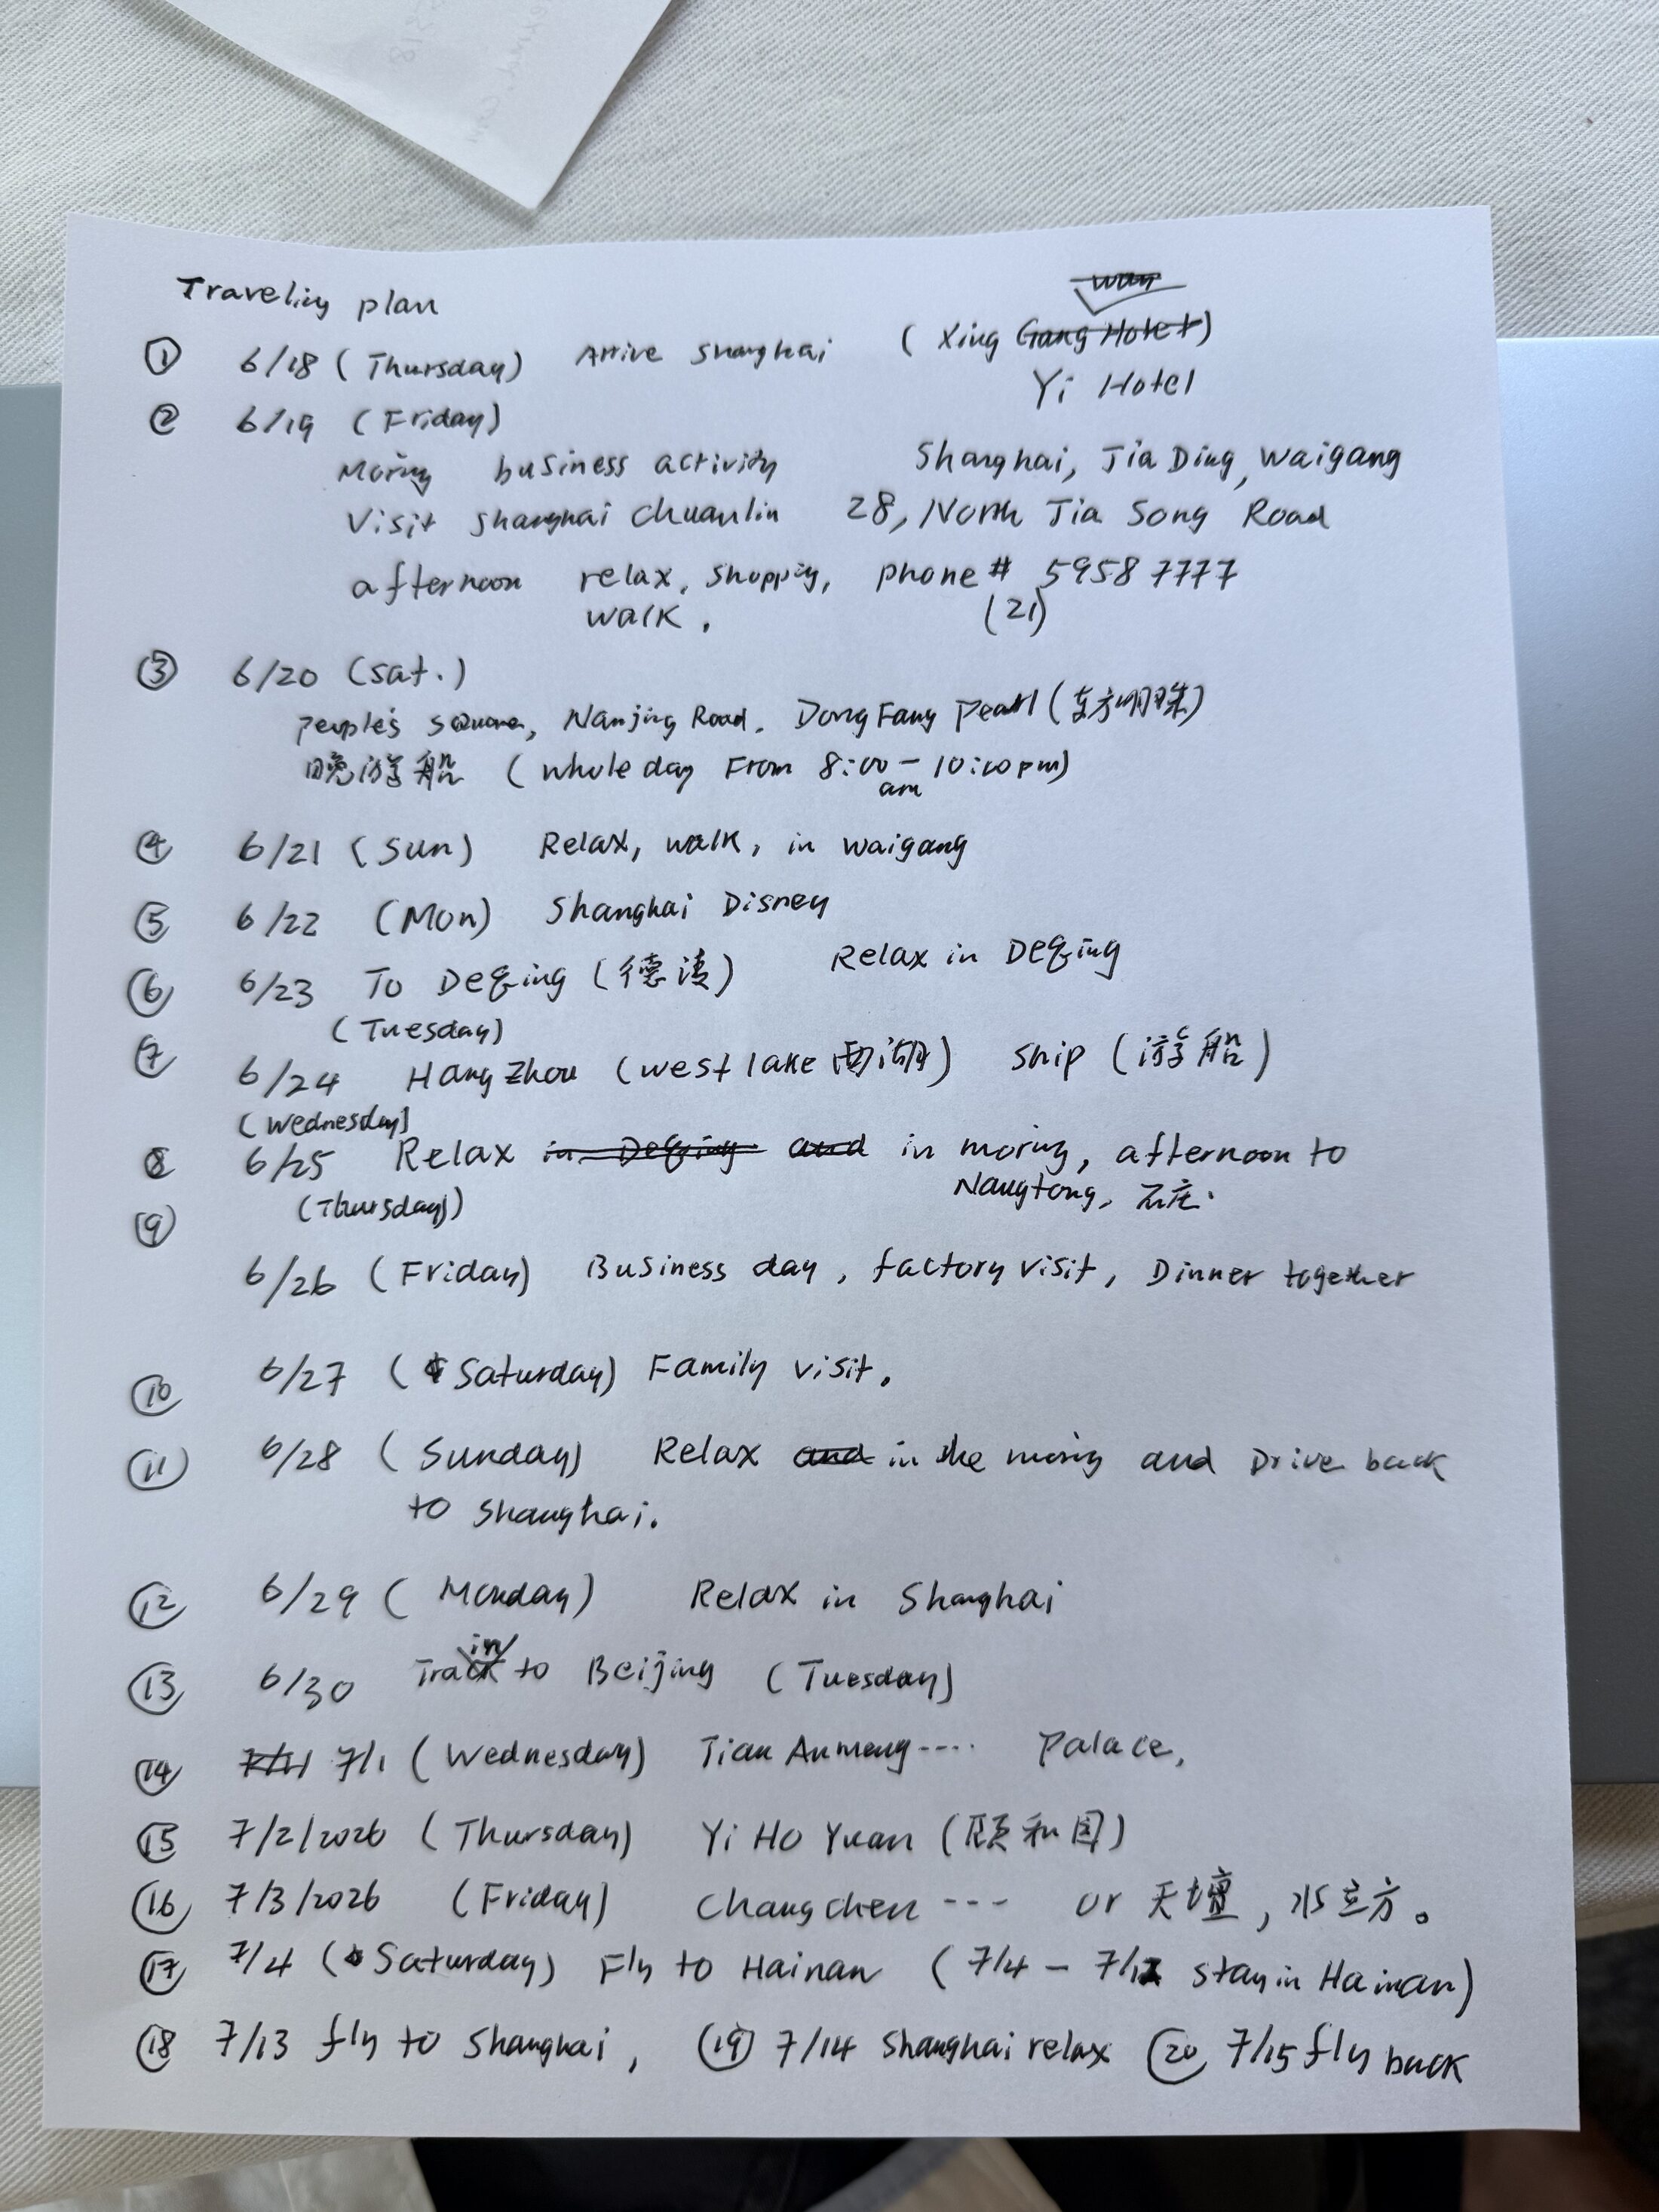 Traveling plan
① 6/18 (Thursday) Arrive Shanghai (Xing Yi Hotel)
② 6/19 (Friday)
Moring business activity Shanghai, Jia Ding, Waigang
Visit Shanghai Chuanlin 28, North Jia Song Road
afternoon relax, shopping, phone # 5958 7777
walk. (21)
③ 6/20 (Sat.)
People's Square, Nanjing Road, Dong Fang Pearl (东方明珠)
晚游船 (whole day From 8:00 am - 10:00 pm)
④ 6/21 (Sun) Relax, walk, in waigang
⑤ 6/22 (Mon) Shanghai Disney
⑥ 6/23 To Deqing (德清) Relax in Deqing
(Tuesday)
⑦ 6/24 Hang Zhou (west lake 西湖) Ship (游船)
(Wednesday)
⑧ 6/25 Relax in moring, afternoon to
(Thursday) Nangtong, 石庄.
⑨
6/26 (Friday) Business day, factory visit, Dinner together
⑩ 6/27 (Saturday) Family visit.
⑪ 6/28 (Sunday) Relax in the moring and Drive back
to Shanghai.
⑫ 6/29 (Monday) Relax in Shanghai
⑬ 6/30 Train to Beijing (Tuesday)
⑭ 7/1 (Wednesday) Tian Anmeng .... Palace,
⑮ 7/2/2026 (Thursday) Yi Ho Yuan (颐和园)
⑯ 7/3/2026 (Friday) Changchen --- or 天壇, 水立方。
⑰ 7/4 (Saturday) Fly to Hainan (7/4 - 7/12 stay in Hainan)
⑱ 7/13 fly to Shanghai, ⑲ 7/14 Shanghai relax ⑳ 7/15 fly back